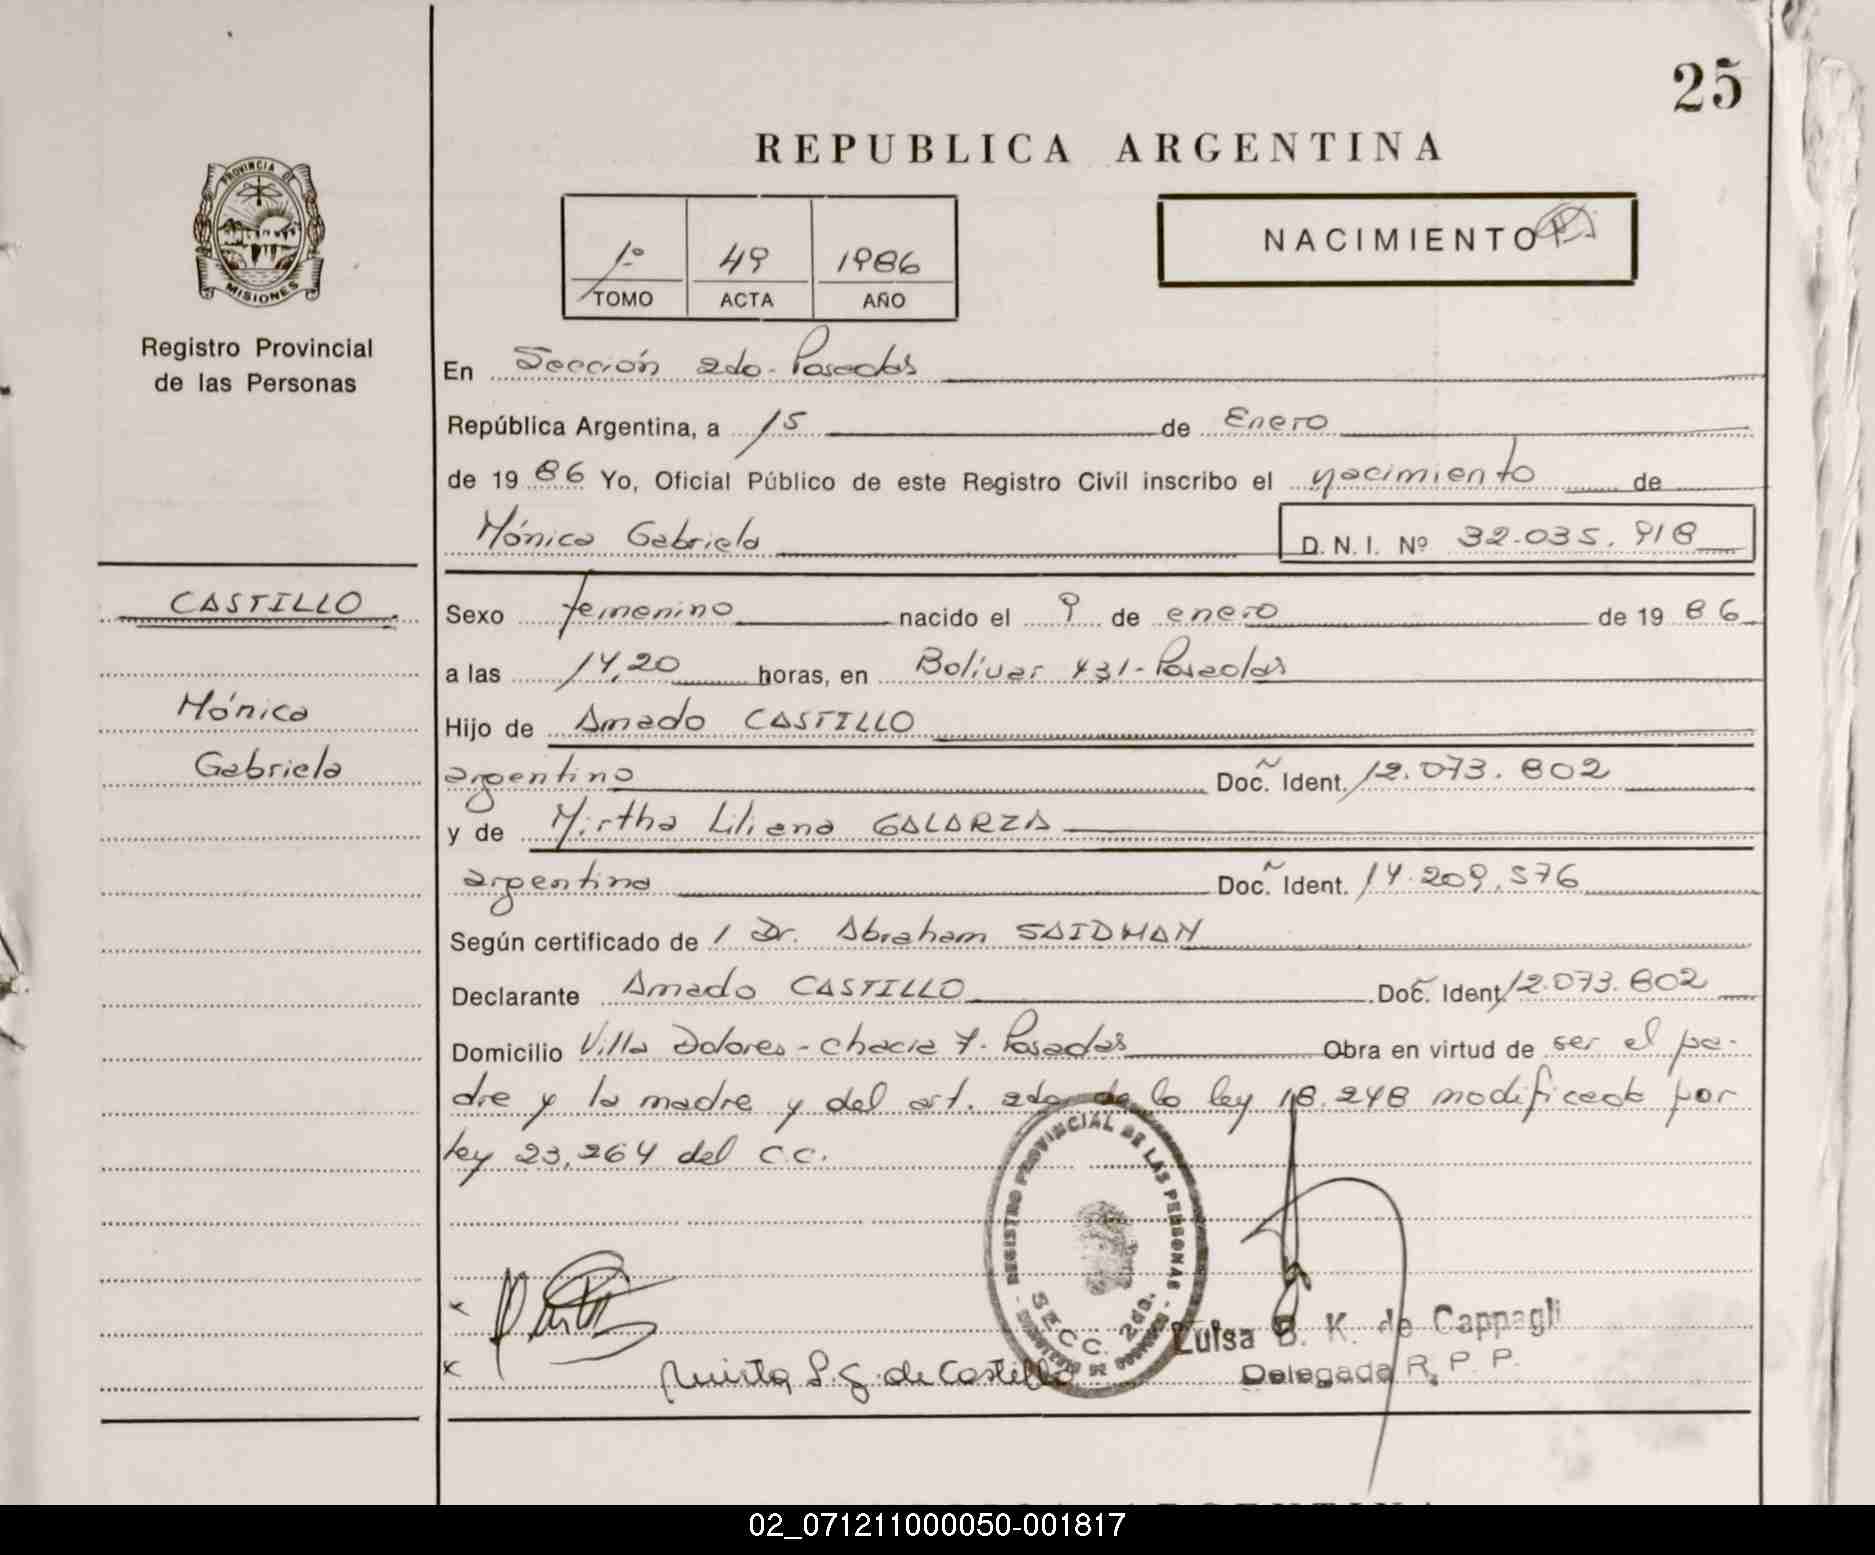 25
REPUBLICA ARGENTINA
PROVINCIA DE
MISIONES
Registro Provincial
de las Personas
1º 49 1986
TOMO ACTA AÑO
NACIMIENTO
En Sección 2do. Posadas
República Argentina, a 15 de Enero
de 1986 Yo, Oficial Público de este Registro Civil inscribo el nacimiento de
Mónica Gabriela D. N. I. Nº 32.035.918
CASTILLO
Mónica
Gabriela
Sexo femenino nacido el 9 de enero de 1986
a las 14,20 horas, en Bolívar 431-Posadas
Hijo de Amado CASTILLO
argentino Doc. Ident. 12.073.802
y de Mirtha Liliana GALARZA
argentina Doc. Ident. 14.209.576
Según certificado de / Dr. Abraham SAIDMAN
Declarante Amado CASTILLO Doc. Ident. 12.073.802
Domicilio Villa Dolores-chacra 7-Posadas Obra en virtud de ser el pa-
dre y la madre y del art. 2do de la ley 18.248 modificado por
ley 23,264 del C.C.
REGISTRO PROVINCIAL DE LAS PERSONAS
SECC. 2da.
x
x Mirta L. G. de Castillo
Luisa B. K. de Cappagli
Delegada R. P. P.
02_071211000050-001817